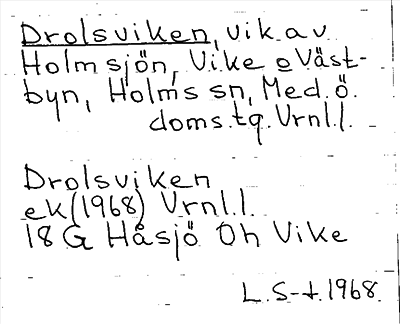 Drolsviken, vik av
Holmsjön, Vike o Väst-
byn, Holms sn, Med. ö.
doms.tg. Vrnl.l.
Drolsviken
ek (1968) Vrnl.l.
18 G Håsjö Oh Vike
L. S-t. 1968.